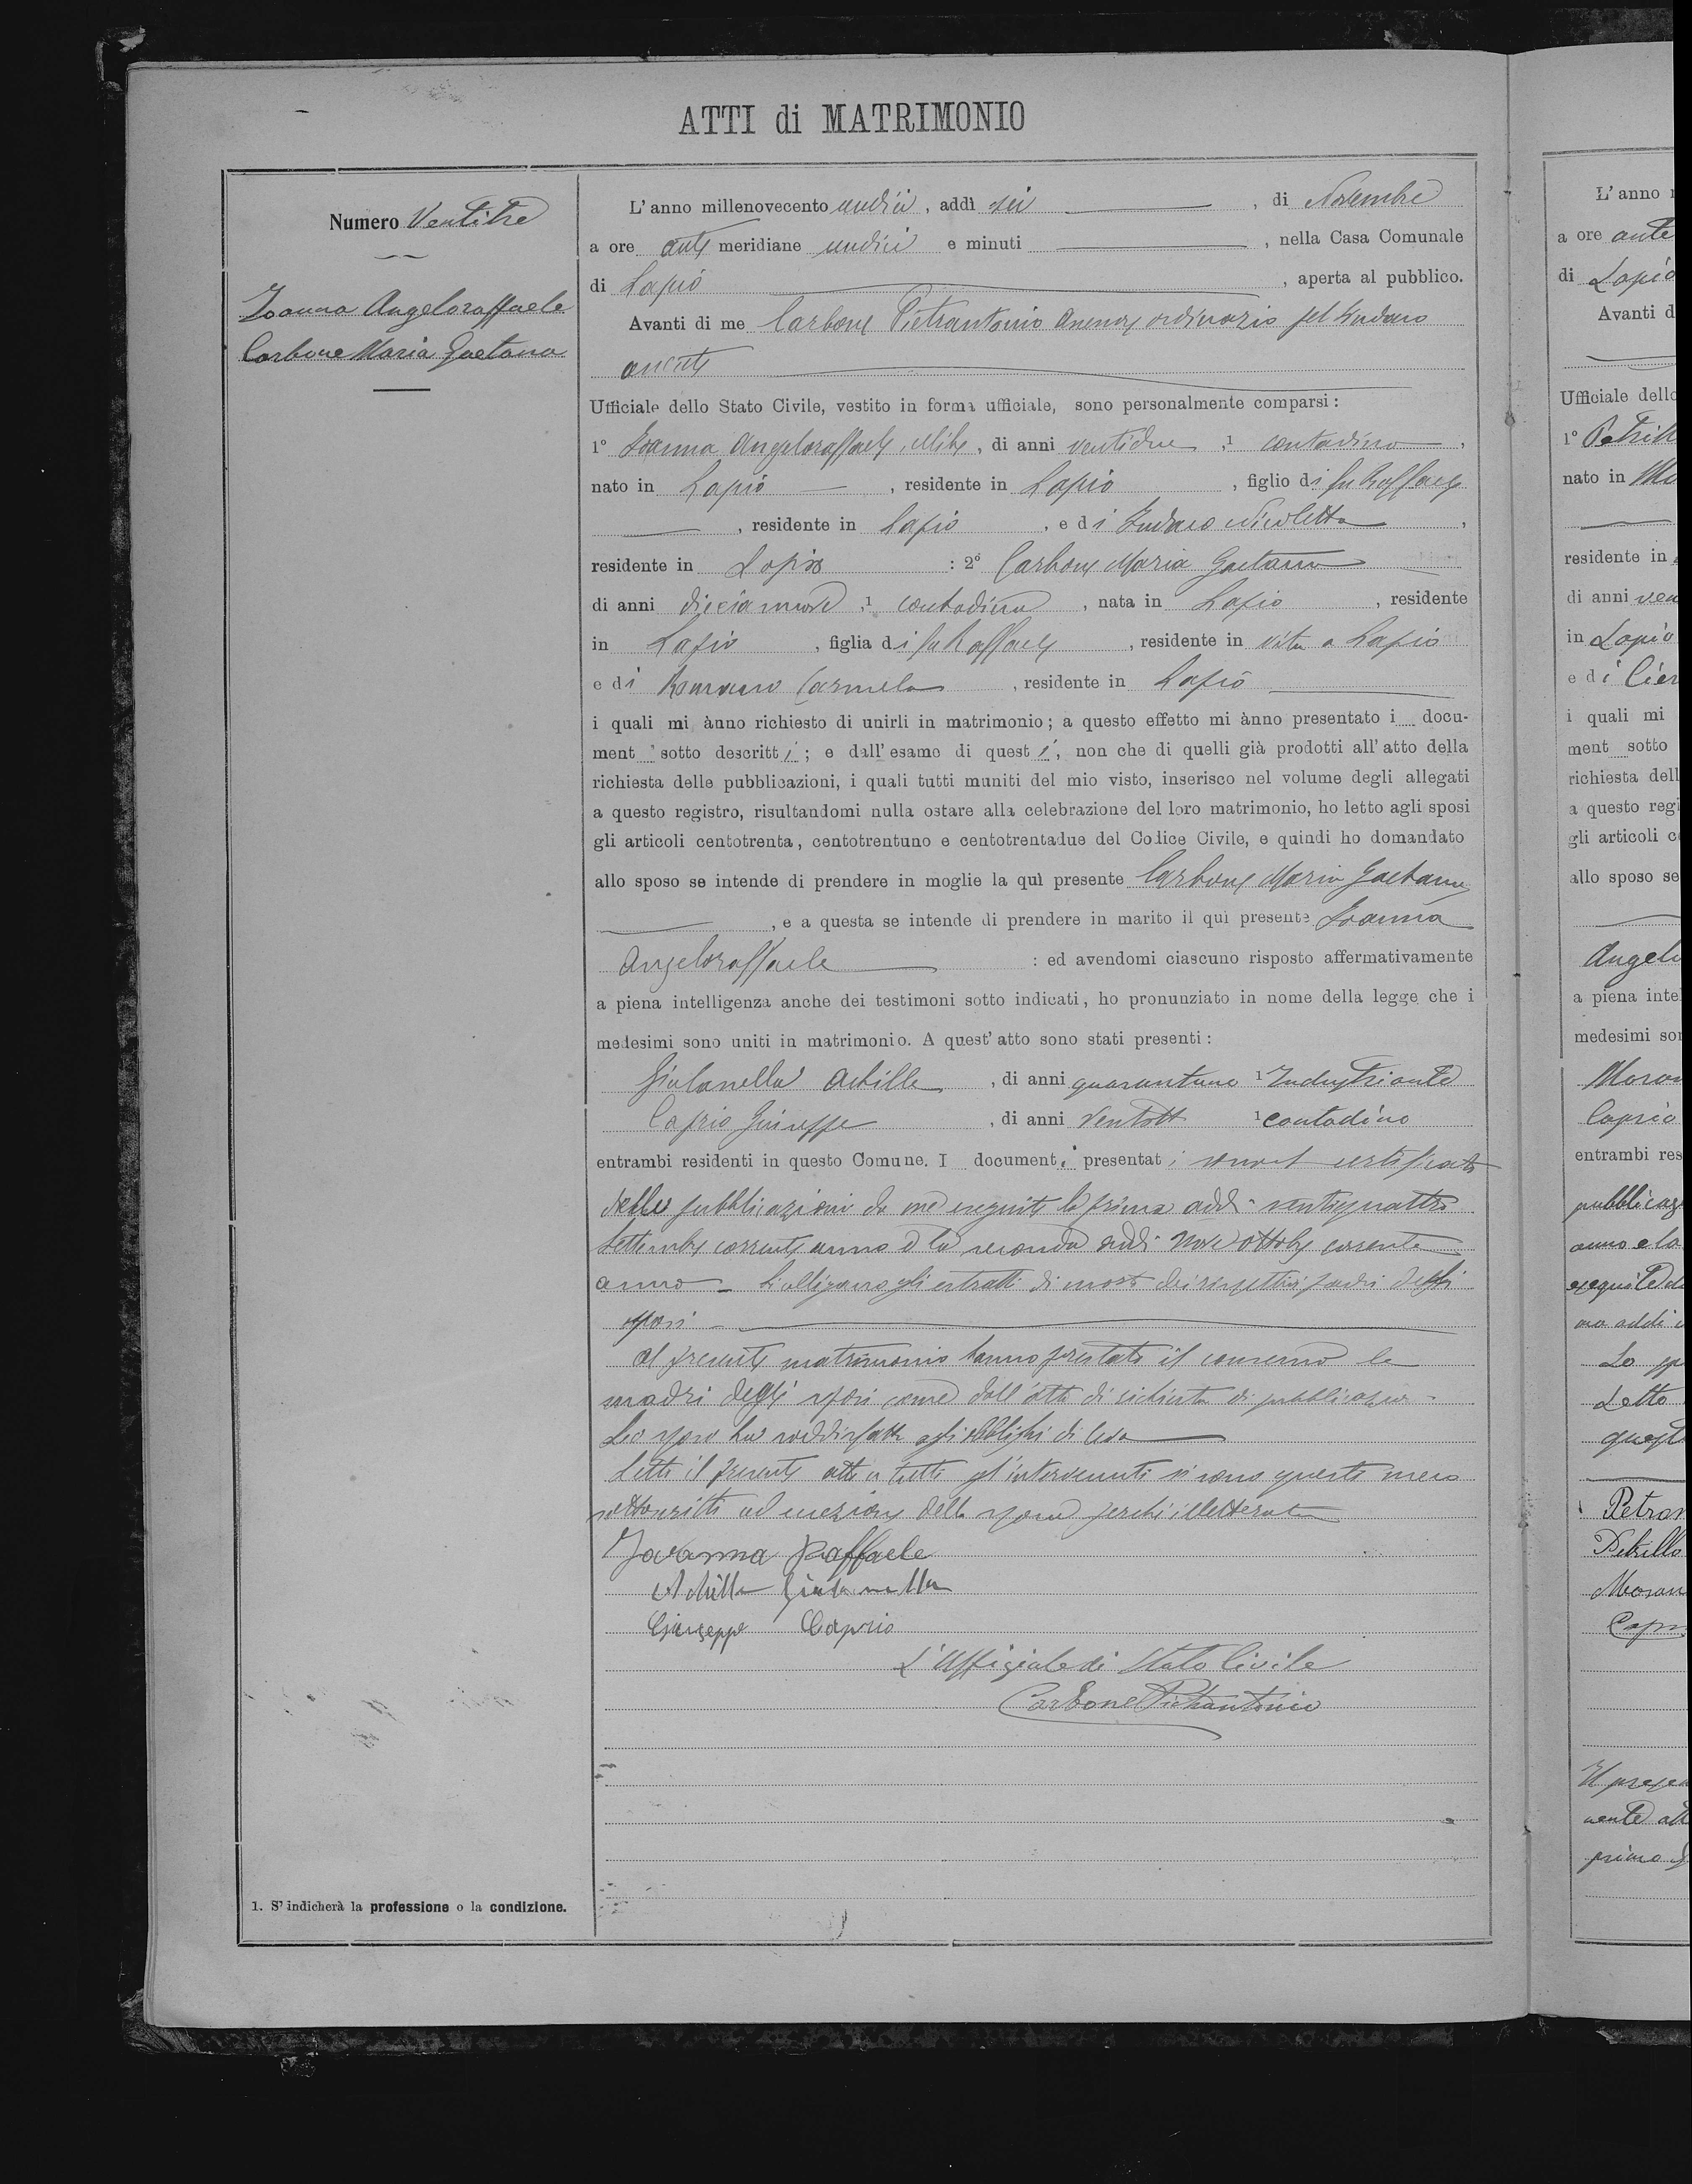 ATTI di MATRIMONIO
Numero Ventitre
Ioanna Angeloraffaele
Carbone Maria Gaetana
1. S' indicherà la professione o la condizione.
L' anno millenovecento undici, addì sei, di Novembre
a ore ante meridiane undici e minuti, nella Casa Comunale
di Lapio, aperta al pubblico.
Avanti di me Carbone Pietrantonio Assessore ordinario pel Sindaco
assente
Ufficiale dello Stato Civile, vestito in forma ufficiale, sono personalmente comparsi:
1° Ioanna Angeloraffaele, celibe, di anni ventidue, 1 contadino,
nato in Lapio, residente in Lapio, figlio di fu Raffaele
, residente in Lapio, e di Nicoletta,
residente in Lapio : 2° Carbone Maria Gaetana
di anni diecianove, 1 contadina, nata in Lapio, residente
in Lapio, figlia di fu Raffaele, residente in vita a Lapio
e di Romano Carmela, residente in Lapio
i quali mi ànno richiesto di unirli in matrimonio; a questo effetto mi ànno presentato i docu-
menti sotto descritti; e dall' esame di questi, non che di quelli già prodotti all' atto della
richiesta delle pubblicazioni, i quali tutti muniti del mio visto, inserisco nel volume degli allegati
a questo registro, risultandomi nulla ostare alla celebrazione del loro matrimonio, ho letto agli sposi
gli articoli centotrenta, centotrentuno e centotrentadue del Codice Civile, e quindi ho domandato
allo sposo se intende di prendere in moglie la quì presente Carbone Maria Gaetana
, e a questa se intende di prendere in marito il quì presente Ioanna
Angeloraffaele : ed avendomi ciascuno risposto affermativamente
a piena intelligenza anche dei testimoni sotto indicati, ho pronunziato in nome della legge che i
medesimi sono uniti in matrimonio. A quest' atto sono stati presenti:
Achille, di anni quarantuno 1 Industriante
Caprio Giuseppe, di anni Ventotto 1 contadino
entrambi residenti in questo Comune. I documenti presentati sono i certificati
delle pubblicazioni da me eseguite la prima addì ventiquattro
Settembre corrente anno e la seconda addì nove ottobre corrente
anno - Si allegano gli estratti di morte dei rispettivi padri degli
sposi -
Al presente matrimonio hanno prestato il consenso le
madri degli sposi come dall' atto di richiesta di pubblicazioni -
Lo sposo ha soddisfatto agli obblighi di leva
Letto il presente atto a tutti gl' intervenuti si sono questi meco
sottoscritti ad eccezione della sposa perchè illetterata
Joanna Raffaele
Achille
Giuseppe Caprio
L' Uffiziale di Stato Civile
Carbone Pietrantonio
L' anno
a ore ante
di Lapio
Avanti d
Ufficiale dello
1° Petrill
nato in
residente in
di anni
in Lapio
e di
i quali mi
ment sotto
richiesta dell
a questo regi
gli articoli c
allo sposo se
Angelo
a piena inte
medesimi so
Caprio
entrambi res
anno e la
Lo
Letto
Petrillo